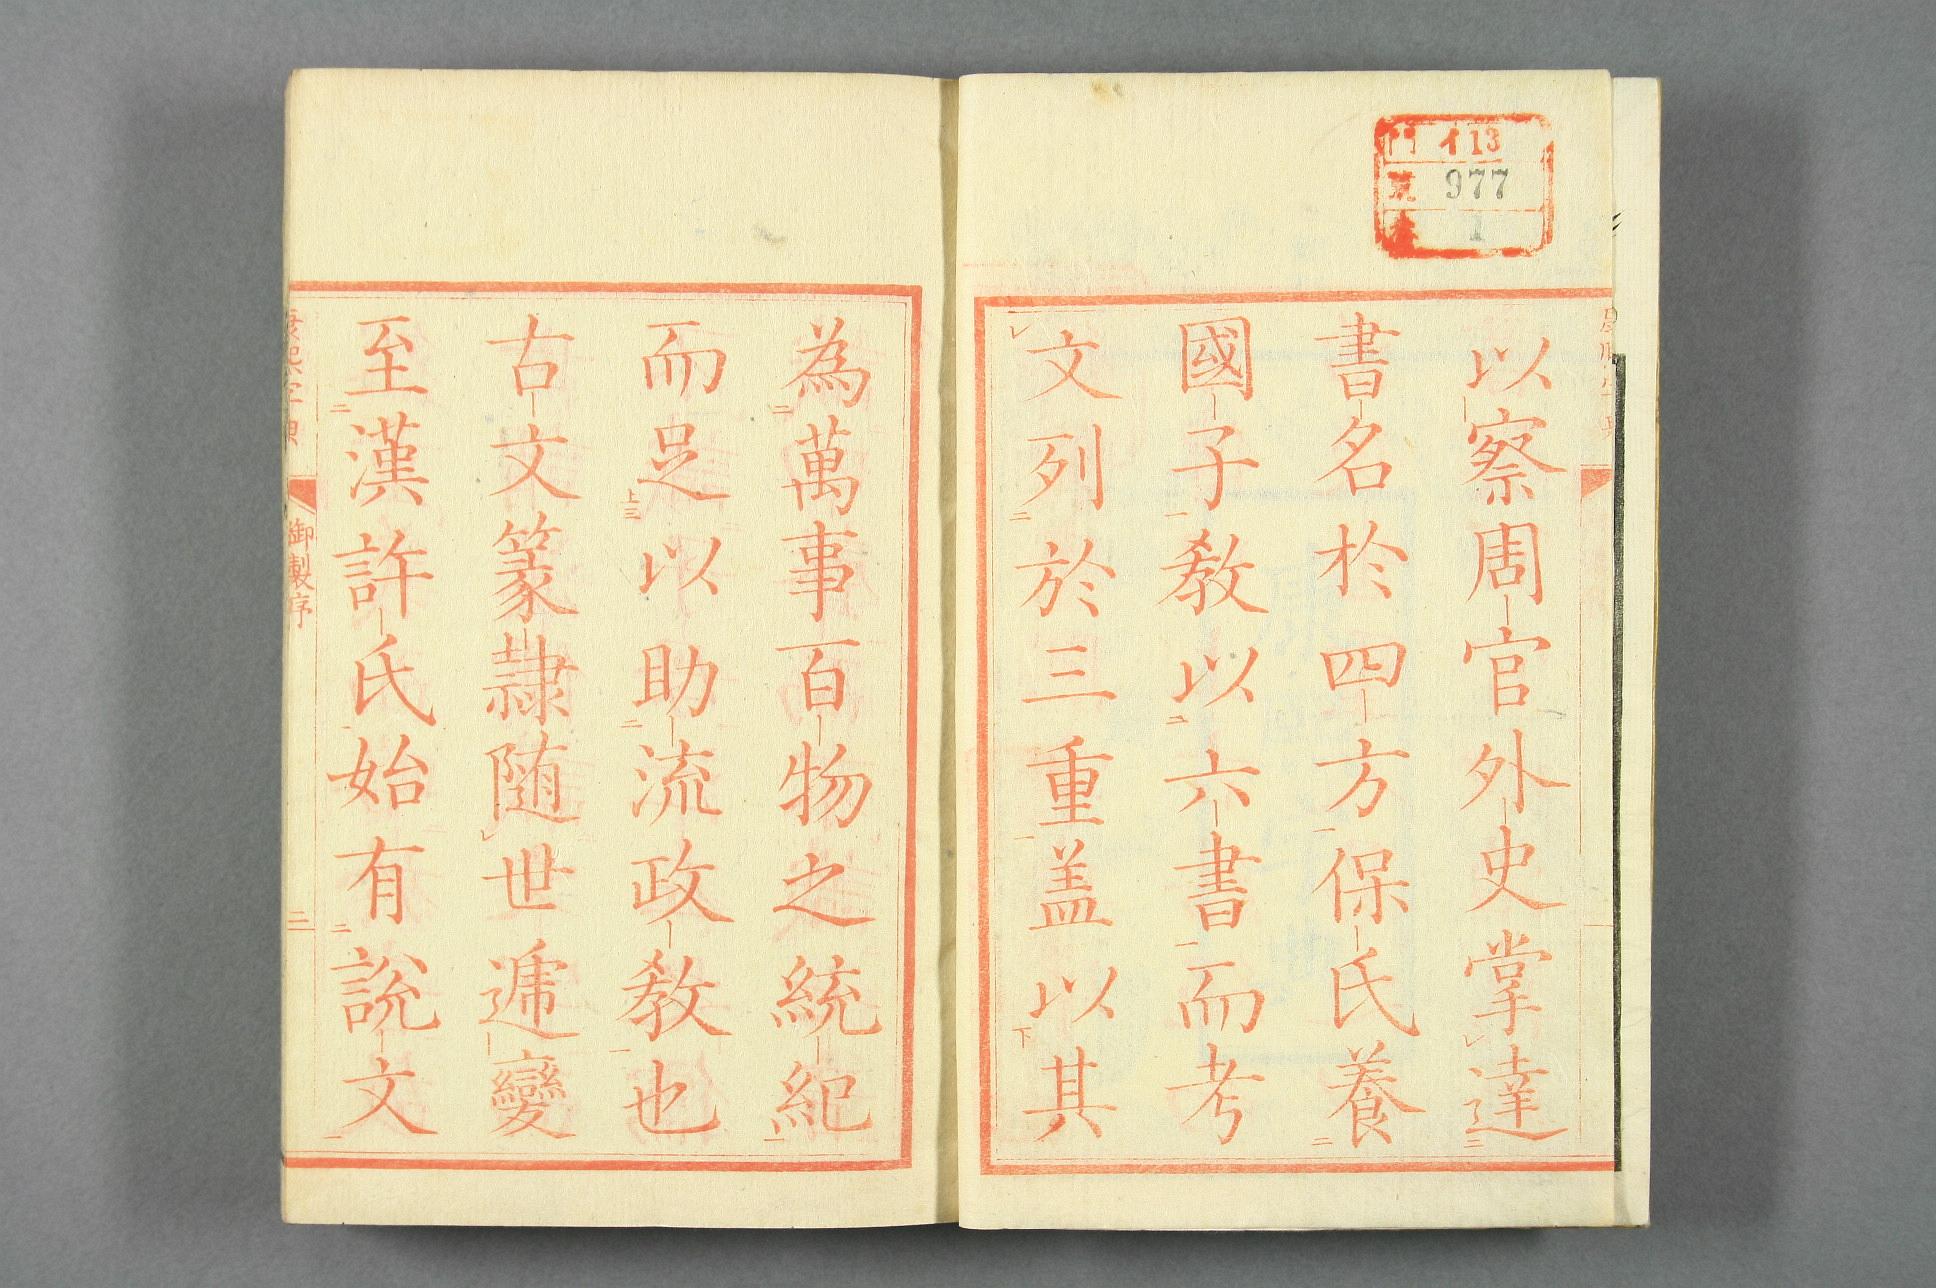 門 イ13
號 977
卷 1
以察周官外史掌達
書名於四方保氏養
國子教以六書而考
文列於三重盖以其
為萬事百物之統紀
而足以助流政教也
古文篆隸随世遞變
至漢許氏始有說文
康熙字典
御製序
二